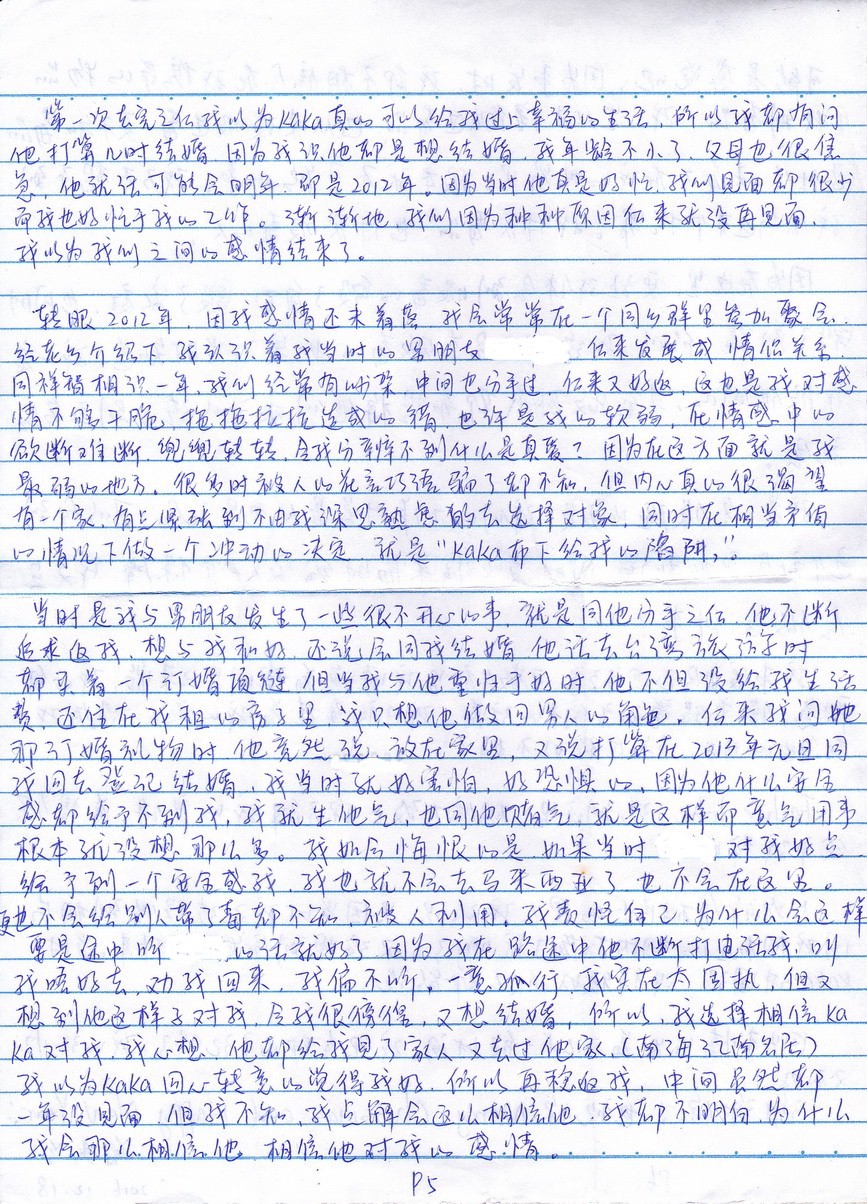 第一次去完之后我以为KaKa真的可以给我过上幸福的生活，所以我都有问
他打算几时结婚，因为我识他都是想结婚，我年龄不小了，父母也很焦
急，他就话可能会明年，即是2012年，因为当时他真是好忙，我们见面都很少
而我也好忙于我的工作。渐渐地，我们因为种种原因后来就没再见面，
我以为我们之间的感情结束了。
转眼2012年，因我感情还未着落，我会常常在一个同乡群里参加聚会，
经在乡介绍下，我认识着我当时的男朋友 后来发展成情侣关系，
同样错相识一年，我们经常有吵架，中间也分手过，后来又好返，这也是我对感
情不够干脆，拖拖拉拉造成的错，也许是我的软弱，在情感中的
欲断难断，兜兜转转，令我分辨不到什么是真爱？因为在这方面就是我
最弱的地方。很多时被人的花言巧语骗了却不知，但内心真的很渴望
有一个家，有点紧张到不由我深思熟虑的去选择对象，同时在相当矛盾
的情况下做一个冲动的决定，就是“KaKa布下给我的陷阱”。
当时是我与男朋友发生了一些很不开心的事，就是同他分手之后，他不断
追求返我，想与我和好，还说会同我结婚，他话去台湾旅游时
都买着一个订婚项链，但当我与他重归于好时，他不但没给我生活
费，还住在我租的房子里，我只想他做回男人的角色，后来我问他
那订婚礼物时，他竟然说，放在家里，又说打算在2013年元旦同
我回去登记结婚，我当时就好害怕，好恐惧的，因为他什么安全
感都给予不到我，我就生他气，也同他赌气，就是这样而意气用事
根本就没想那么多。我如今悔恨的是，如果当时 对我好点
给予到一个安全感我，我也就不会去马来西亚了，也不会在这里。
更也不会给别人带了毒都不知，被人利用，我责怪自己为什么会这样
要是途中听 的话就好了，因为我在路途中他不断打电话我，叫
我唔好去，劝我回来，我偏不听，一意孤行，我实在太固执，但又
想到他这样子对我，令我很傍徨，又想结婚，所以，我选择相信Ka
Ka对我，我心想，他都给我见了家人，又去过他家，（南海江南名居）
我以为KaKa回心转意的觉得我好，所以再稳返我，中间虽然都
一年没见面，但我不知，我点解会这么相信他，我都不明白，为什么
我会那么相信他，相信他对我的感情。
P5